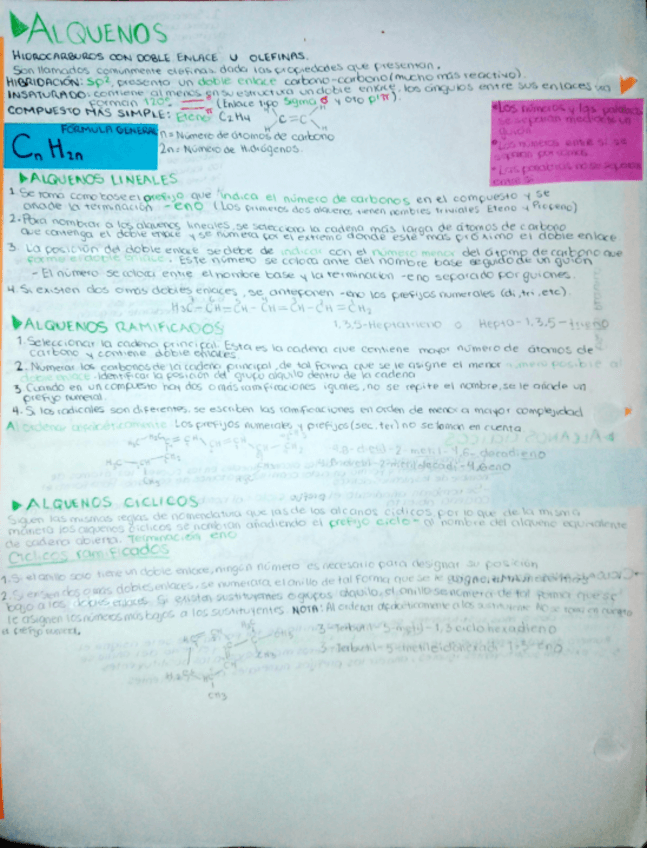 ALQUENOS
HIDROCARBUROS CON DOBLE ENLACE U OLEFINAS.
Son llamados comunmente olefinas, dada las propiedades que presentan.
HIBRIDACIÓN: Sp², presenta un doble enlace carbono-carbono (mucho más reactivo).
INSATURADO: contiene al menos en su estructura un doble enlace, los ángulos entre sus enlaces
forman 120° (Enlace tipo sigma σ y otro pi π).
COMPUESTO MÁS SIMPLE: Eteno C2H4 C=C
FÓRMULA GENERAL
CnH2n
n= Número de átomos de carbono
2n= Número de Hidrógenos.
•Los números y las palabras
se separan mediante un
guión
•Los números entre si se
separan por comas
•Las palabras no se separan
entre si
ALQUENOS LINEALES
1. Se toma como base el prefijo que indica el número de carbonos en el compuesto y se
añade la terminación -eno (Los primeros dos alquenos tienen nombres triviales Eteno y Propeno)
2. Para nombrar a los alquenos lineales, se selecciona la cadena más larga de átomos de carbono
que contenga el doble enlace y se numera por el extremo donde esté más próximo el doble enlace
3. La posición del doble enlace se debe de indicar con el número menor del átomo de carbono que
forma el doble enlace. Este número se coloca ante del nombre base seguido de un guión
- El número se coloca entre el nombre base y la terminación -eno separado por guiones.
4. Si existen dos o mas dobles enlaces, se anteponen -eno los prefijos numerales (di, tri, etc).
H3C-CH=CH-CH=CH-CH=CH2
1,3,5-Heptatrieno o Hepta-1,3,5-trieno
ALQUENOS RAMIFICADOS
1. Seleccionar la cadena principal. Esta es la cadena que contiene mayor número de átomos de
carbono y contiene doble enlaces.
2. Numerar los carbonos de la cadena principal, de tal forma que se le asigne el menor número posible al
doble enlace. Identificar la posición del grupo alquilo dentro de la cadena
3 Cuando en un compuesto hay dos o más ramificaciones iguales, no se repite el nombre, se le añade un
prefijo numeral.
4. Si los radicales son diferentes, se escriben las ramificaciones en orden de menor a mayor complejidad
Al ordenar alfabéticamente: Los prefijos numerales y prefijos (sec, ter) no se toman en cuenta
ALQUENOS CICLICOS
Siguen las mismas reglas de nomenclatura que las de los alcanos cíclicos por lo que de la misma
manera los alquenos cíclicos se nombran añadiendo el prefijo ciclo- al nombre del alqueno equivalente
de cadena abierta. Terminación eno
Ciclicos ramificados
1. Si el anillo solo tiene un doble enlace, ningún número es necesario para designar su posición
2. Si existen dos o más dobles enlaces, se numerará el anillo de tal forma que se le
bajo a los dobles enlaces. Si existen sustituyentes o grupos alquilo, el anillo se numera de tal forma que se
le asignen los números más bajos a los sustituyentes. NOTA: Al ordenar alfabéticamente a los sustituyentes No se toma en cuenta
el prefijo numeral
CH3